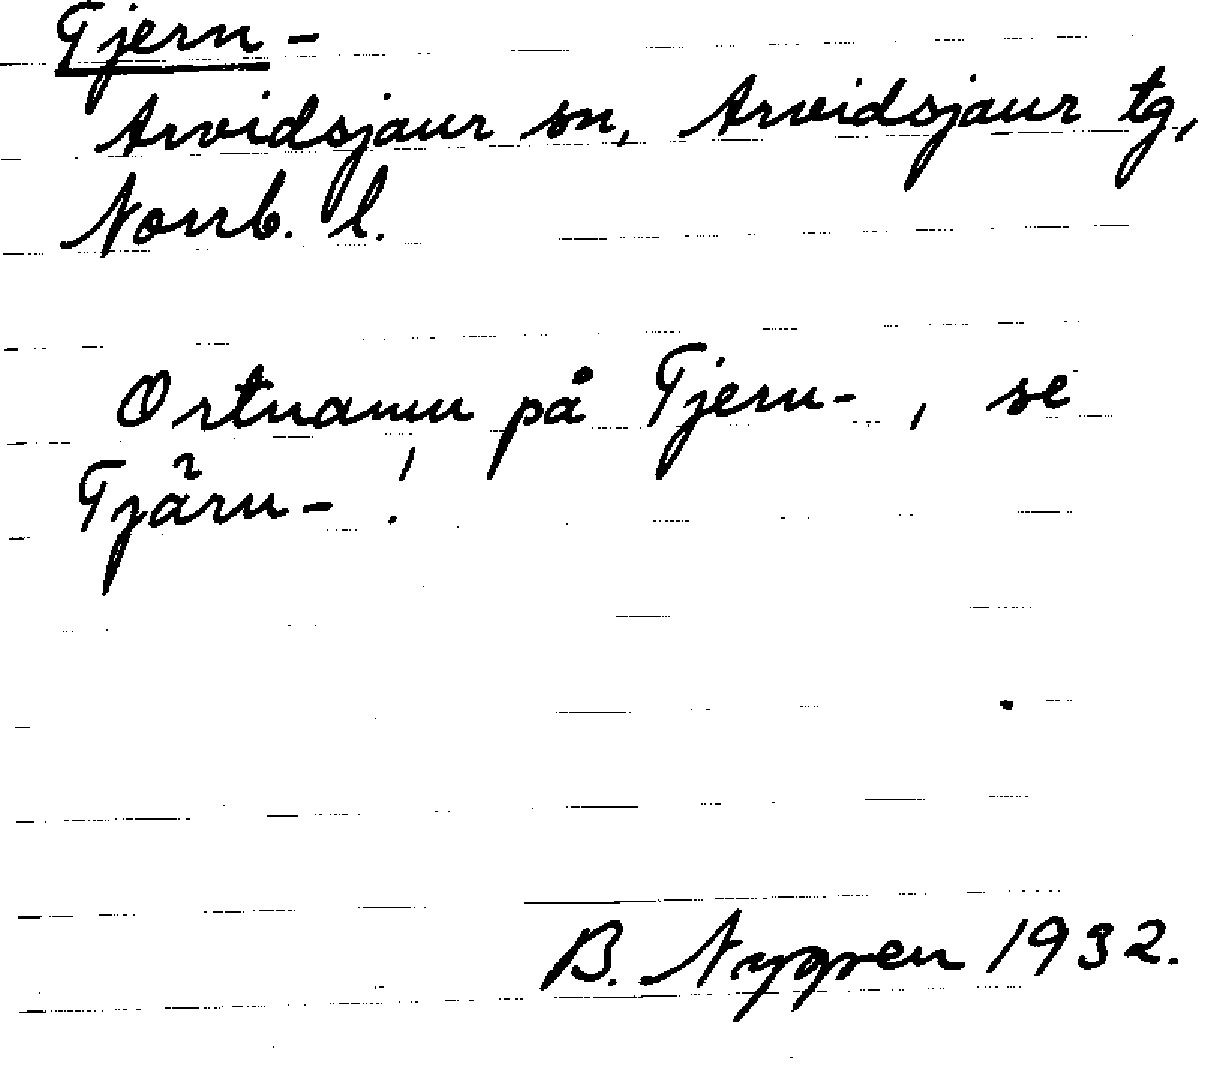 Tjern-
Arvidsjaur sn, Arvidsjaur tg,
Norrb. l.
Ortnamn på Tjern-, se
Tjärn- !
B. Nygren 1932.